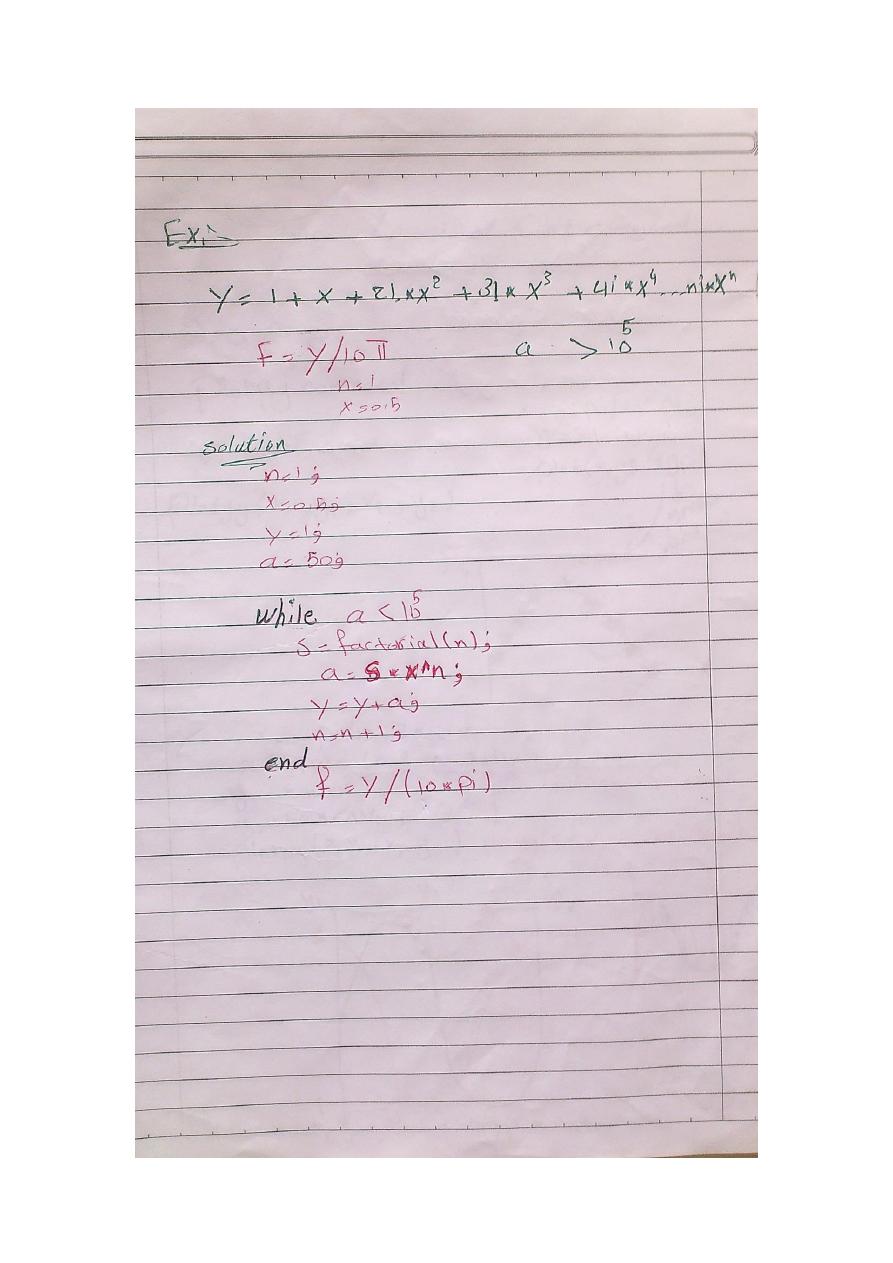 Ex:
Y = 1 + x + 2!*x² + 3!*x³ + 4!*x⁴ ... n!*xⁿ
F = Y/10π a > 10⁵
n=1
x=0.5
solution
n=1;
x=0.5;
y=1;
a=50;
while a<10⁵
s=factorial(n);
a=s*x^n;
y=y+a;
n=n+1;
end
f=y/(10*pi)